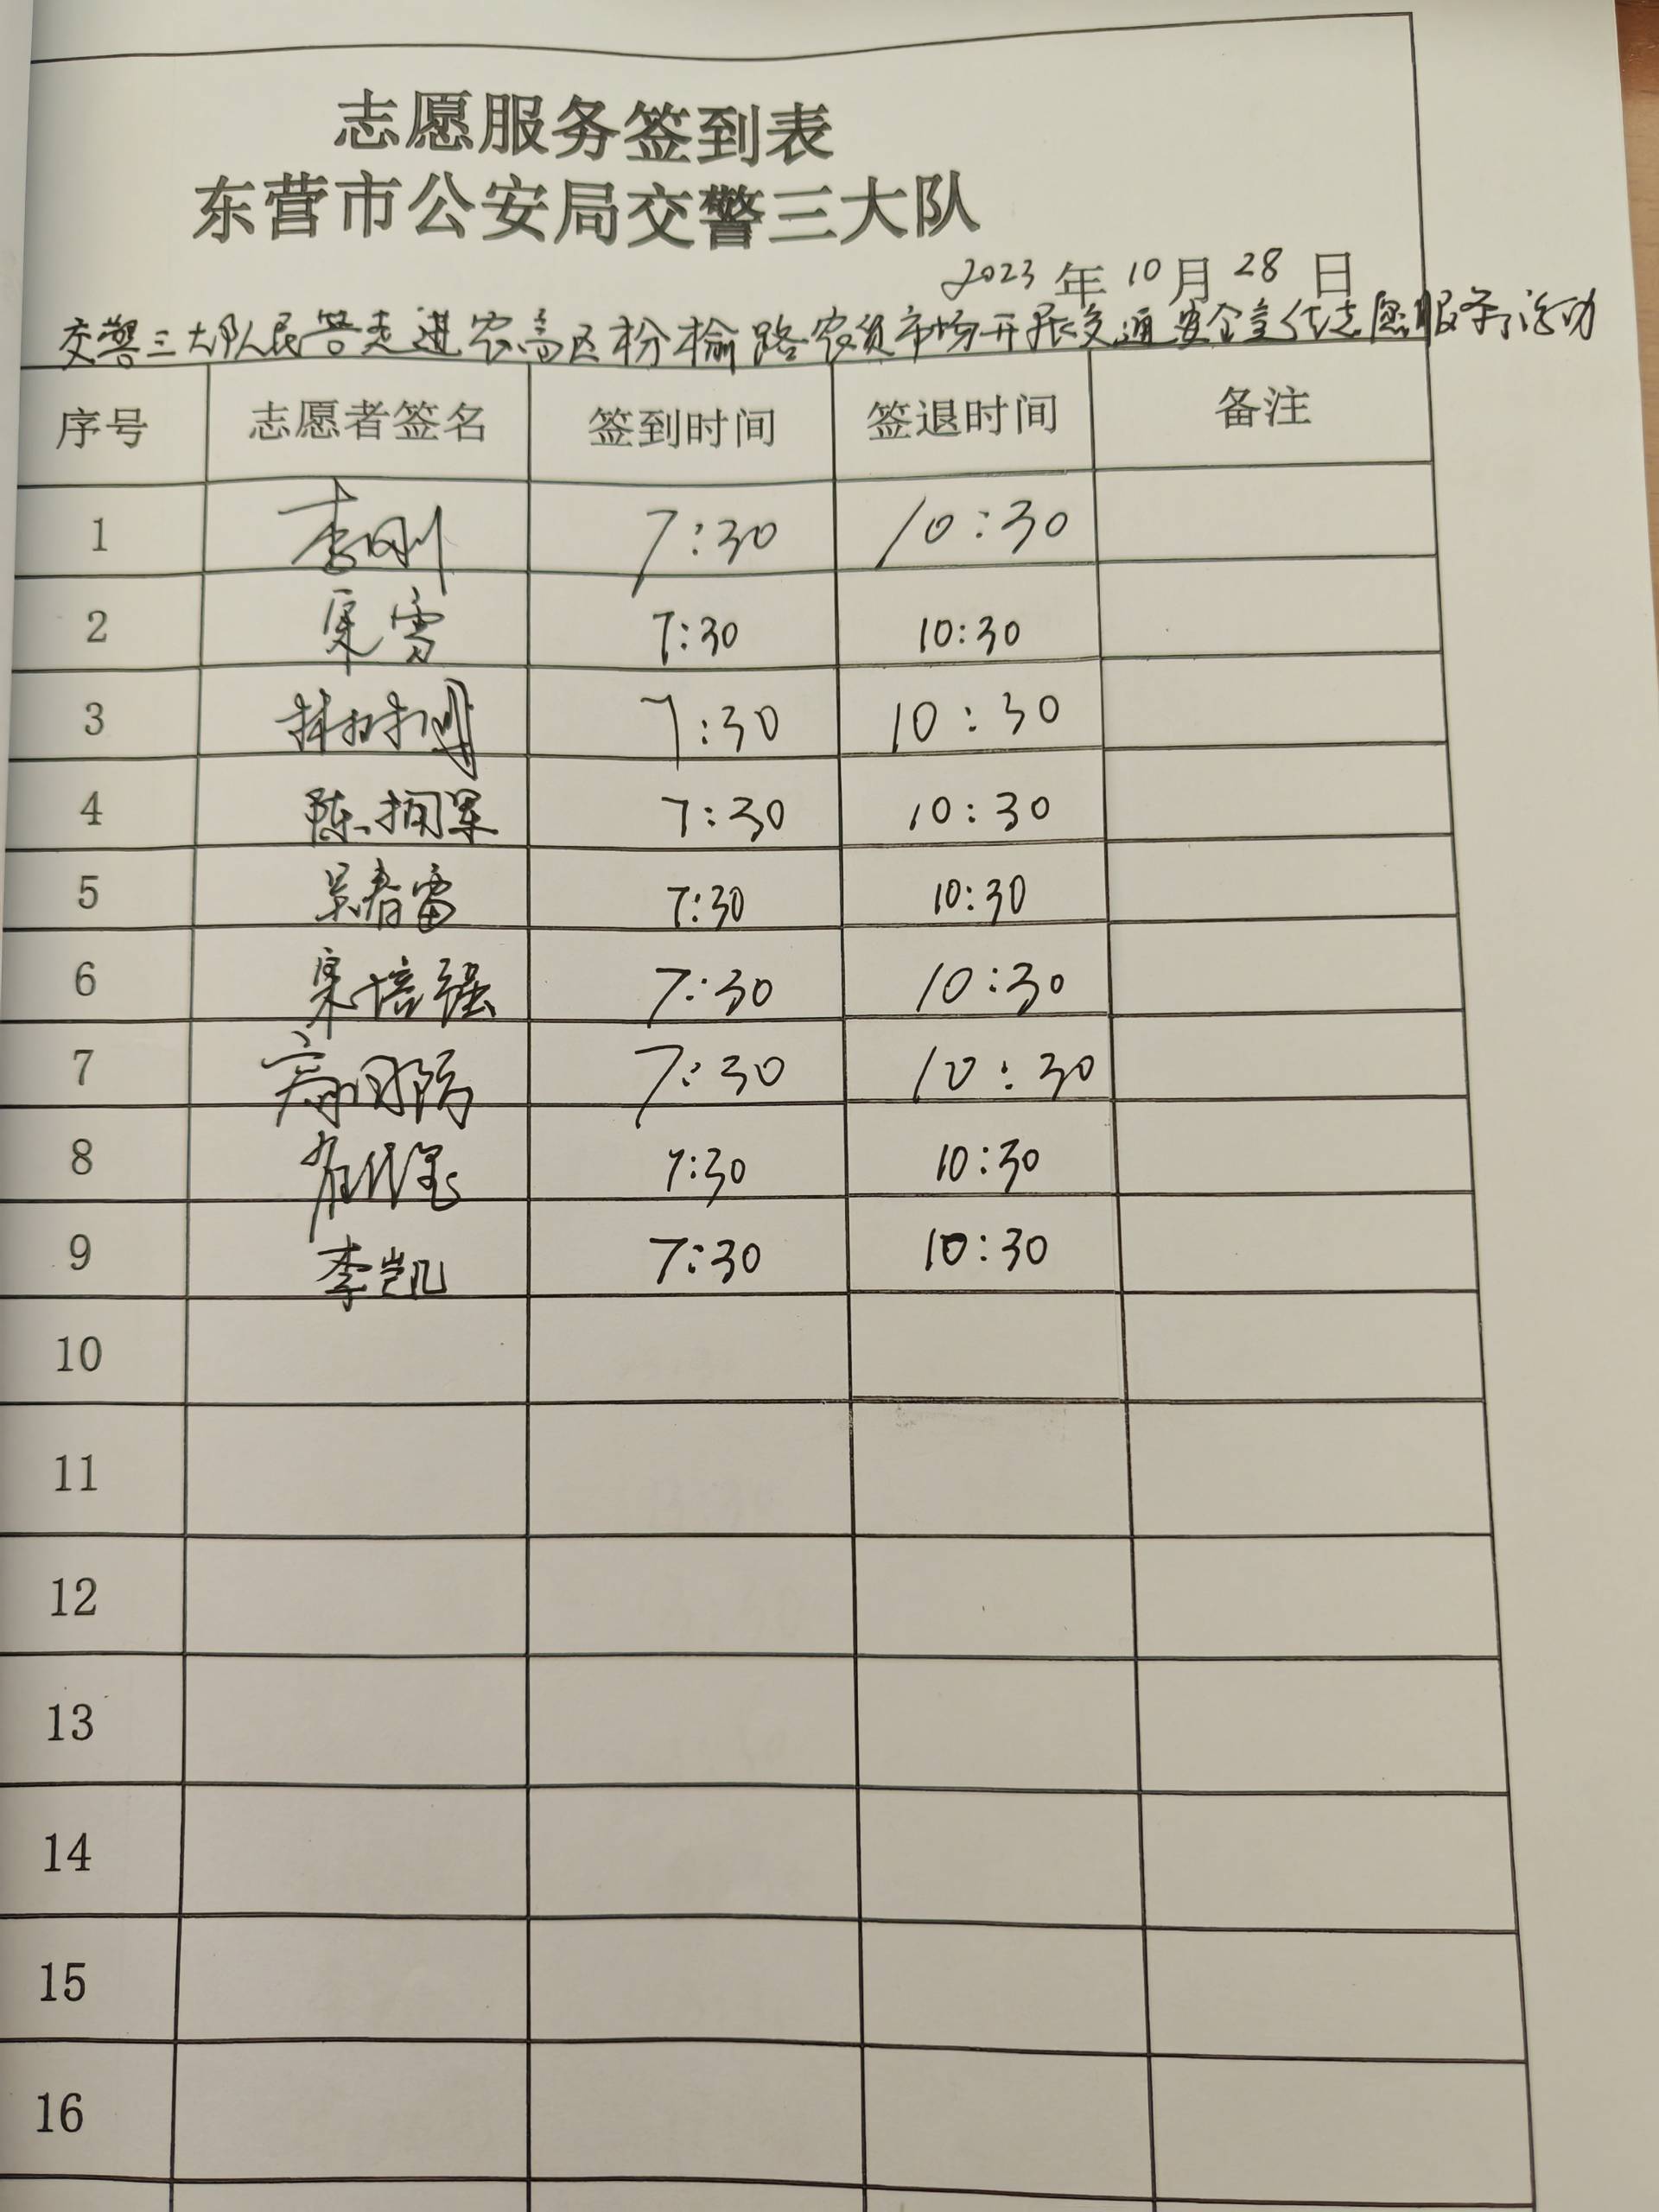 志愿服务签到表
东营市公安局交警三大队
2023 年 10 月 28 日
交警三大队民警走进农高区枌榆路农贸市场开展交通安全宣传志愿服务活动
序号 志愿者签名 签到时间 签退时间 备注
1 李刚 7:30 10:30
2 7:30 10:30
3 7:30 10:30
4 陈拥军 7:30 10:30
5 吴春雷 7:30 10:30
6 培强 7:30 10:30
7 7:30 10:30
8 7:30 10:30
9 李凯 7:30 10:30
10
11
12
13
14
15
16